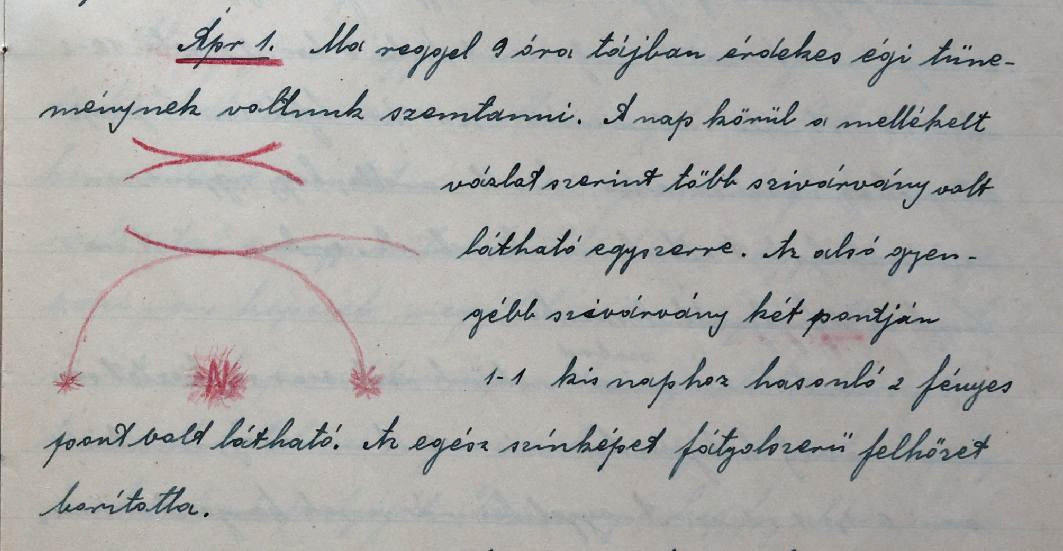 Ápr 1. Ma reggel 9 óra tájban érdekes égi tüne-
ménynek voltunk szemtanui. A nap körül a mellékelt
vázlat szerint több szivárvány volt
látható egyszerre. Az alsó gyen-
gébb szivárvány két pontján
N.
1-1 kis naphoz hasonló 2 fényes
pont volt látható. Az egész színképet fátyolszerű felhőzet
borította.